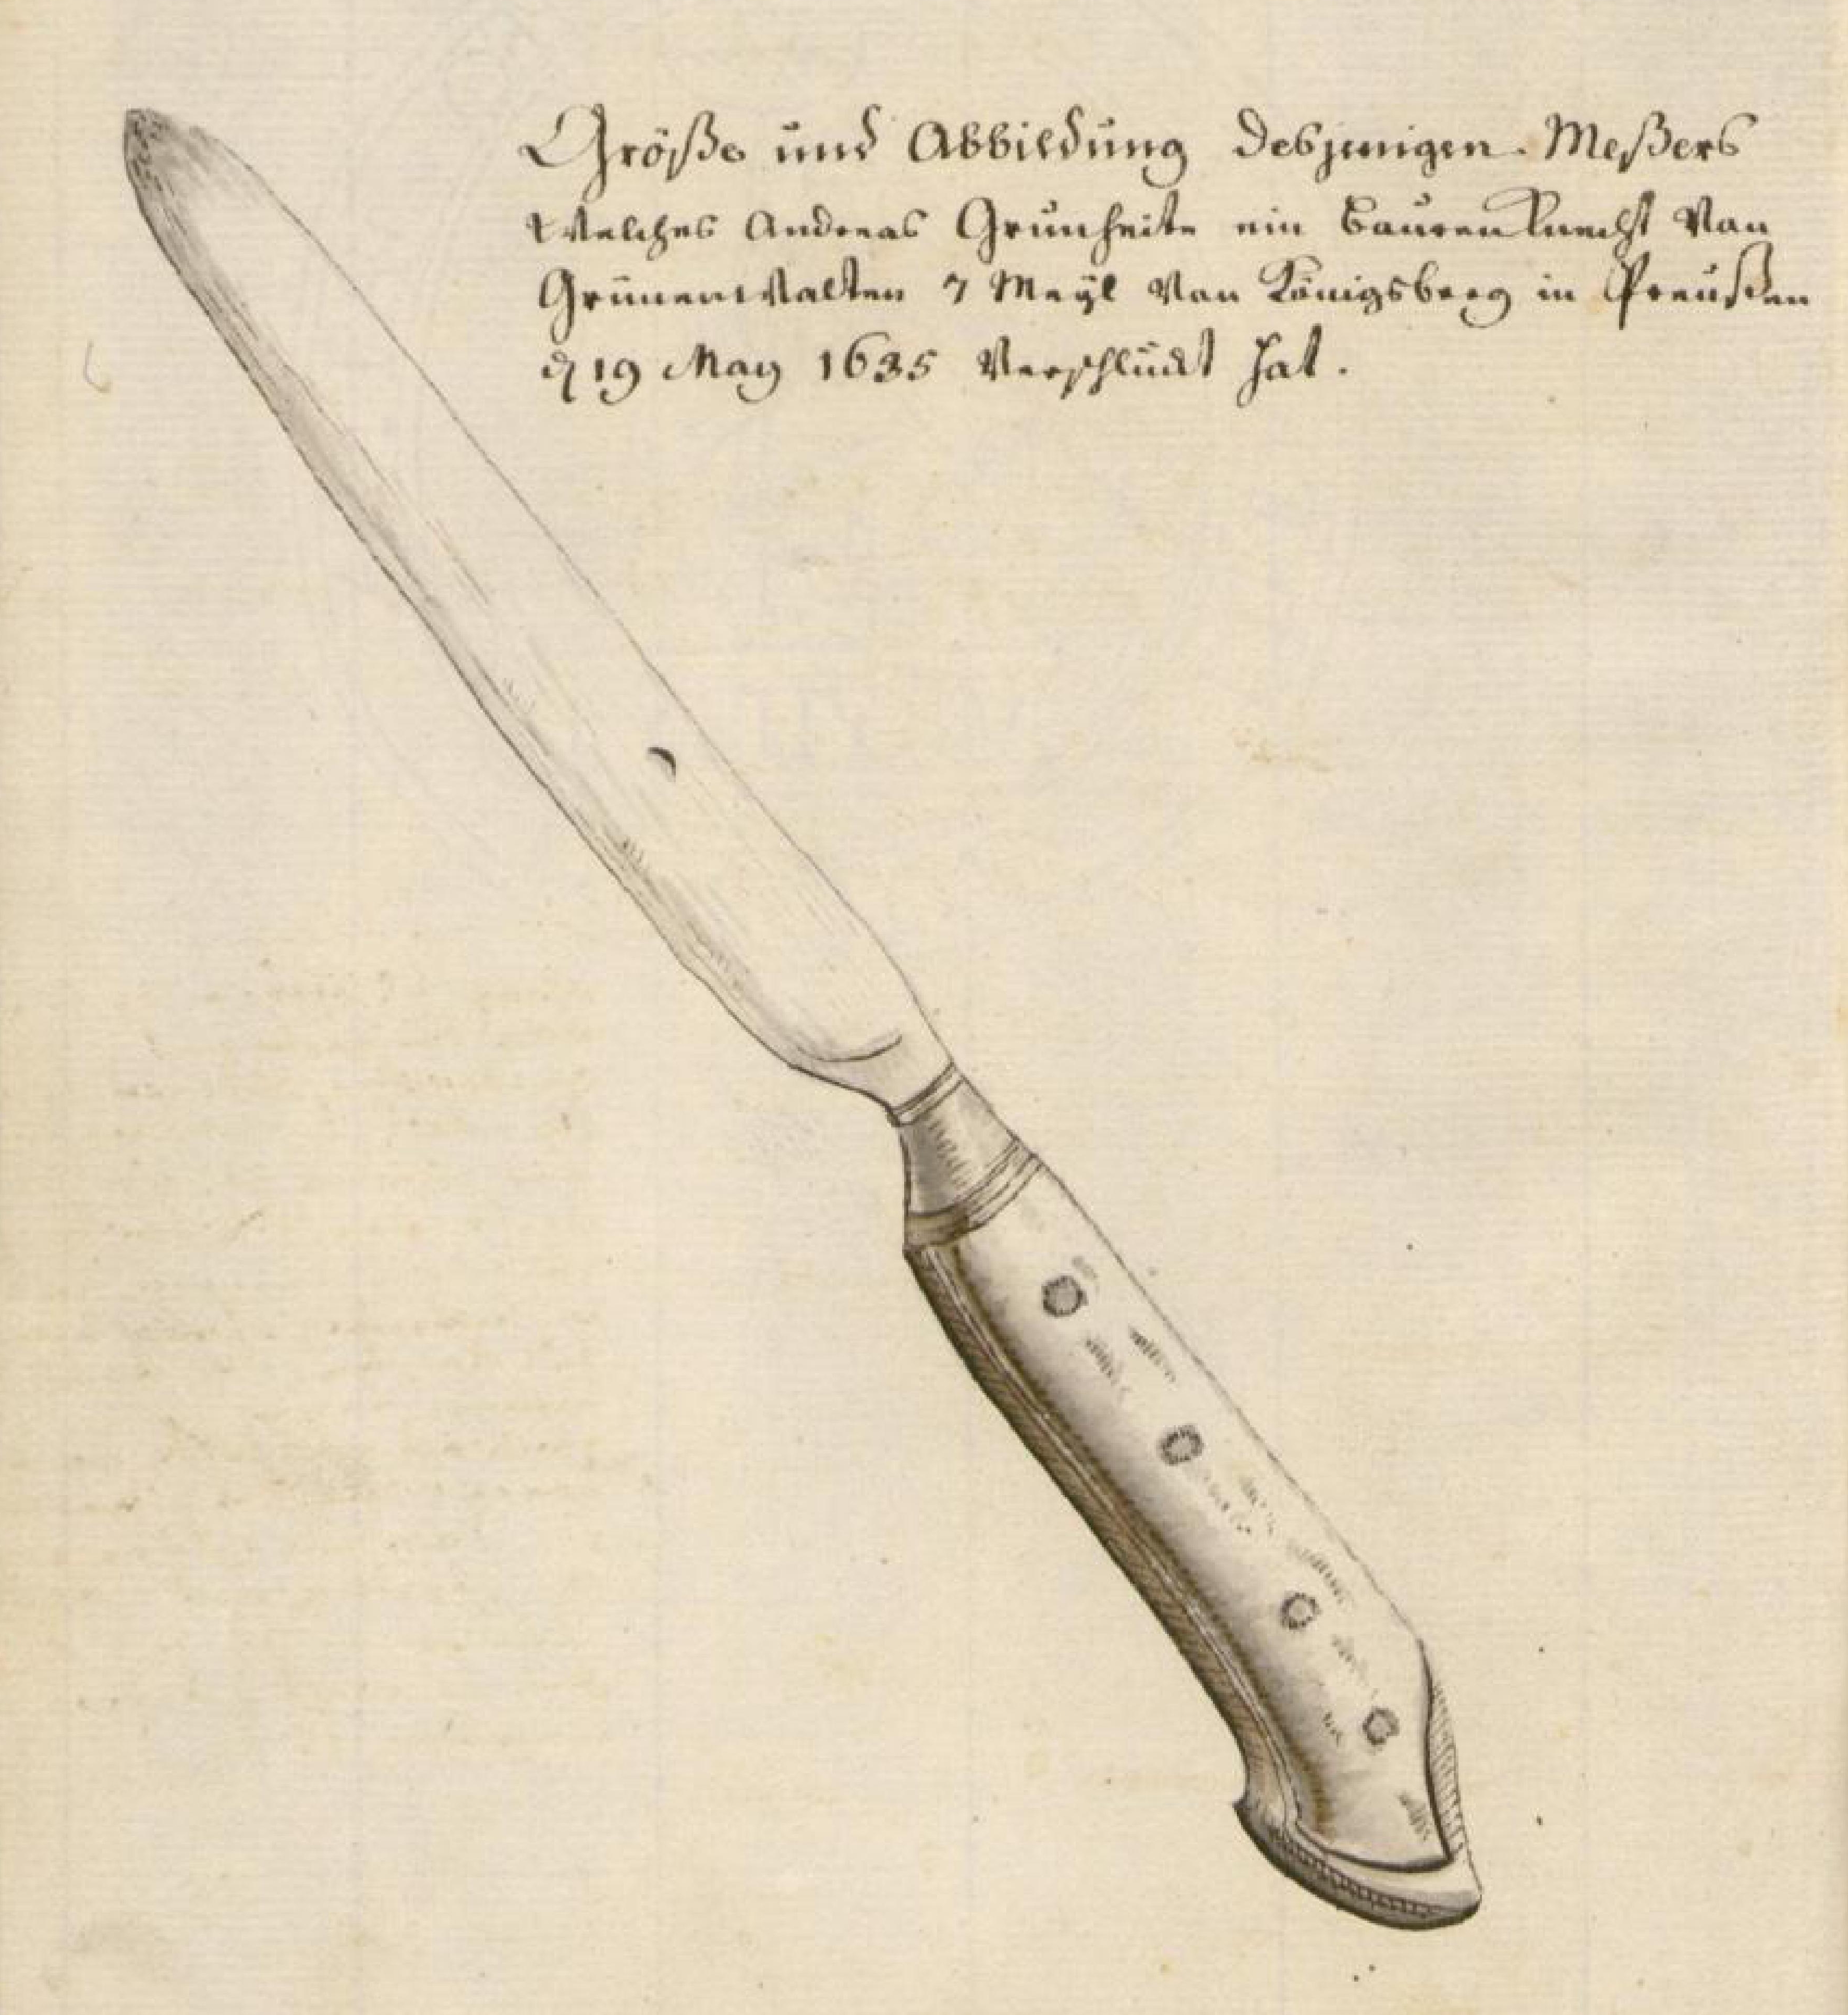 Größe und Abbildung desjenigen Meßers
Welches Andreas Grünheite ein Bauren Knecht Von
Grünenwalten 7 Meÿl Von Königsberg in Preußen
19 May 1635 Verschluckt hat.